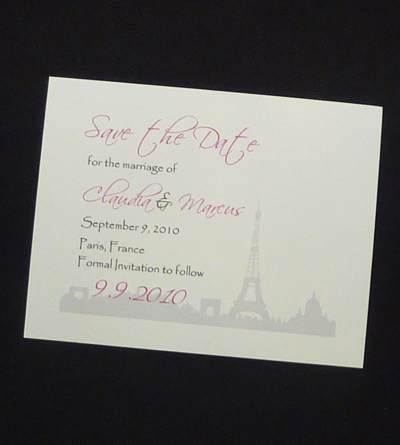 Save the Date
for the marriage of
Claudia & Marcus
September 9, 2010
Paris, France
Formal Invitation to follow
9.9.2010